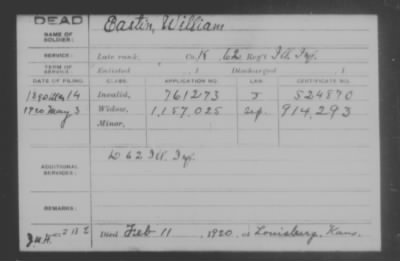 DEAD
NAME OF SOLDIER: Eastin, William
SERVICE: Late rank, Co. K 62 Reg't Ill. Inf.
TERM OF SERVICE: Enlisted , 1 Discharged , 1
DATE OF FILING. CLASS. APPLICATION NO. LAW. CERTIFICATE NO.
1890 14 Invalid, 761273 J 524870
1920 May 3 Widow, 1,157,025 Sep. 914,293
Minor,
ADDITIONAL SERVICES: D 62 Ill. Inf.
REMARKS:
Died Feb 11, 1920, at Louisburg, Kans.